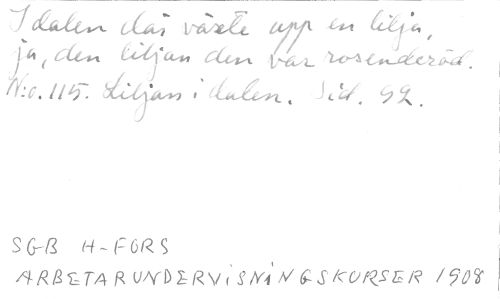 I dalen där växte upp en lilja,
ja, den liljan den var rosenderöd.
N:o. 115. Liljan i dalen. Sid. 92.
SGB H-FORS
ARBETARUNDERVISNINGSKURSER 1908